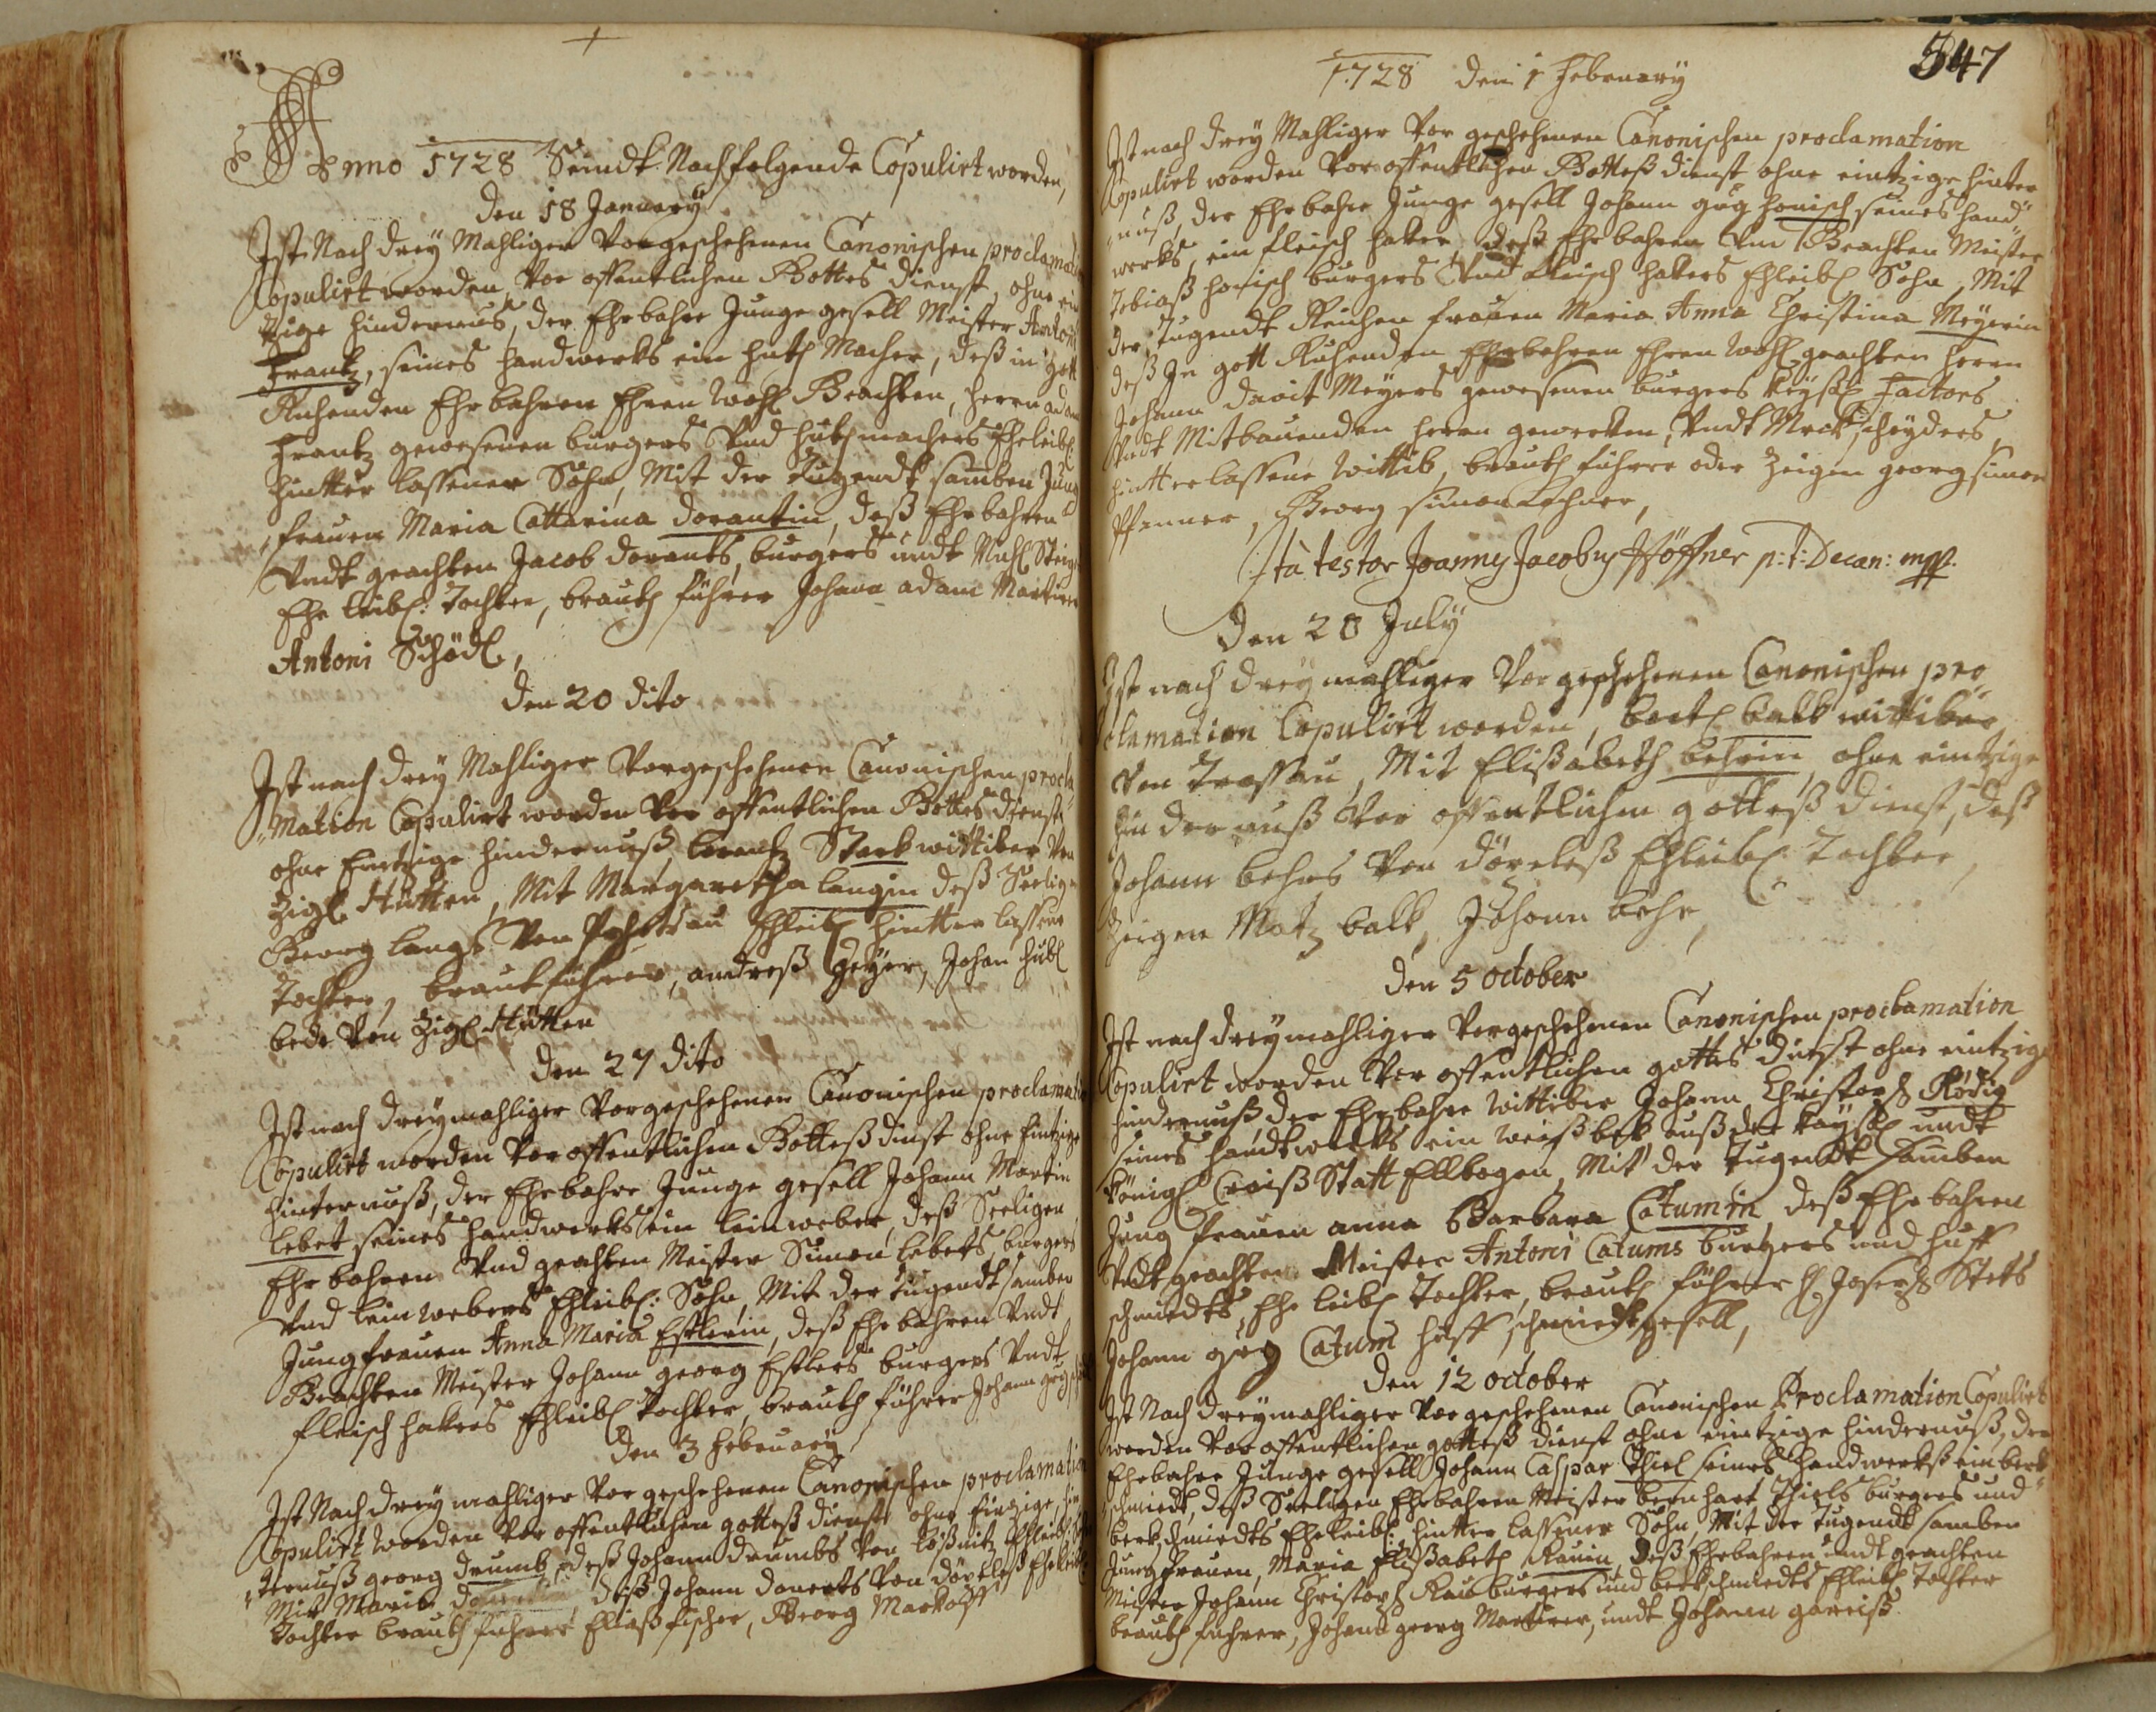 Anno 1728 Seindt Nachfolgende Copulirt worden,
den 18 January
Ist Nach drey Mahliger Vorgeschehenen Canonischen proclamati
Copulirt worden Vor offentlichen Gottes dienst, ohne ein
tzige hindernus, der Ehrbahre Junge gesell Meister Antoni
Frantz, seines handwerks ein huth Macher, deß in gott
Ruhenden Ehrbahren Ehren Wohl Geachten, herrn adam
Frantz gewesenen burgers Vnd huthmachers Eheleibl:
hintter lassener Sohn, Mit der Tugendt samben Jung
frauen Maria Cattarina dorantin, deß Ehrbahren
Vndt geachten Jacob dorants, burgers undt
Ehe leibl: Tochter, brauth führer Johann adam Martiner
Antoni Schödl,
den 20 dito
Ist nach drey Mahliger Vorgeschehenen Canonischen procla
mation Copulirt worden Vor offentlichen Gottes dienst
ohne Eintzige hindernuß, Stark wittiber Von
Zigl Hütten, Mit Margaretha langin deß Seeligen
Georg langs Von Eheleibl hintter lassene
Tochter, brautführer, andreß Geyer, Johan
bede Von Zigl Hütten
den 27 dito
Ist nach dreymahliger Vorgeschehener Canonischen proclamati
Copulirt worden Vor offentlichen Gotteß dinst ohne Eintzige
hinternuß, der Ehrbahre Junge gesell Johann Martin
lebet seines handwerks ein leinweber, deß Seeligen
Ehrbahren Vnd geachten Meister Simon lebets, burgers
Vnd leinwebers Ehleibl: Sohn, Mit der tugendt samben
Jungfrauen Anna Maria Estlerin, deß Ehrbahren Vndt
Geachten Meister Johann georg Estlers burgers Vndt
fleisch hakers Ehleibl tochter, brauth führer Johann görg
den 3 February
Ist Nach drey mahliger Vorgeschehenen Canonischen proclamation
Copulirt worden Vor offentlichen gotteß dienst ohne Einzige hin
ternuß georg drumb, deß Johann drumbs Von lößnitz Ehleibl
Mit Maria deß Johann donerts Von dörfleß Eheleibl
Tochter brauth führer Eliaß fischer, Georg Markolff
547
1728 den 1 February
Ist nach drey Mahliger Vor geschehenen Canonischen proclamation
Copulirt worden Vor offentlichen Gotteß dienst ohne eintzige hinter
nuß, der Ehrbahre Junge gesell Johann görg honisch, seines hand
werks, ein fleisch haker, deß Ehrbahren Vnd Geachten Meister
Tobiaß honisch burgers Vnd fleisch hakers Ehleibl Sohn, Mit
der Tugendt Reichen frauen Maria Anna Christina Meyerin
deß In gott Ruhenden Ehrbahren Ehren wohl geachten herrn
Johann davit Meyers gewesenen burgers Keysl: Factors
Vndt Mitbauenden herrn gewerken, Vndt Markscheyders
hintterlassene wittib, brauth führer oder Zeigen georg simon
Pfenner, Georg simon Lehner,
Ità testor Joannes Jacobus Höffner p: t: Decan: mpp.
den 20 July
Ist nach dreymahliger Vor geschehenen Canonischen pro
clamation Copulirt worden, balb wittiber
Von Trossau, Mit Elisabeth behrin ohne eintzige
hin dernuß Vor offentlichen gotteß dienst, deß
Johann behrs Von dörfleß Ehleibl Tochter,
Zeigen Matz balb, Johann behr,
den 5 october
Ist nach dreymahliger Vorgeschehenen Canonischen proclamation
Copulirt worden Vor offentlichen gottes dienst ohne eintzige
hindernuß der Ehrbahre Wittiber Johann Christoph Rödig
seines handtwerks ein weißbek auß der Kaysl: undt
Königl Creiß Statt Ellbogen, Mit der tugendt samben
Jung frauen anna Barbara Catumin, deß Ehrbahren
Vndt geachten Meister Antoni Catums burgers und huff
schmiedts, Ehe leibl Tochter, brauth führer H: Joseph Stets
Johann görg Catum huff schmiedt gesell,
den 12 october
Ist Nach dreymahliger Vor geschehenen Canonischen Proclamation Copulirt
worden Vor offentlichen gotteß dienst ohne eintzige hindernuß, der
Ehrbahre Junge gesell Johann Caspar Thiel seines handwerks ein berk
schmiedt, deß Seeligen Ehrbahren Meister bernhart Thiels burgers und
berkschmiedts Eheleibl: hintter lassener Sohn, Mit der tugendt samben
Jungfrauen, Maria Elisabeth Rauin, deß Ehrbahren undt geachten
Meister Johann Christoph Rau burgers und berkschmiedts Ehleibl Tochter
brauth führer, Johann georg Martiner, undt Johann gareiß.